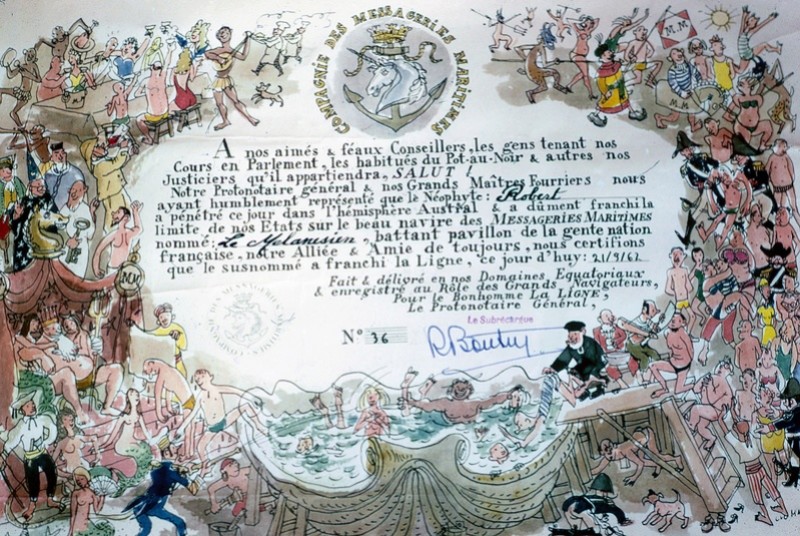 COMPAGNIE DES MESSAGERIES MARITIMES
M.M
A nos aimés & féaux Conseillers, les gens tenant nos
Cours en Parlement, les habitués du Pot-au-Noir & autres nos
Justiciers qu'il appartiendra, SALUT !
Notre Protonotaire général & nos Grands Maîtres Fourriers nous
ayant humblement représenté que le Néophyte: Robert
a pénétré ce jour dans l'hémisphère Austral & a dûment franchi la
limite de nos Etats sur le beau navire des MESSAGERIES MARITIMES
nommé: Le Mélanésien, battant pavillon de la gente nation
française, notre Alliée & Amie de toujours, nous certifions
que le susnommé a franchi la Ligne, ce jour d'huy: 21/9/62
Fait & délivré en nos Domaines Equatoriaux
& enregistré au Rôle des Grands Navigateurs,
Pour le Bonhomme LA LIGNE,
Le Protonotaire Général,
Le Subrécargue
N° 36